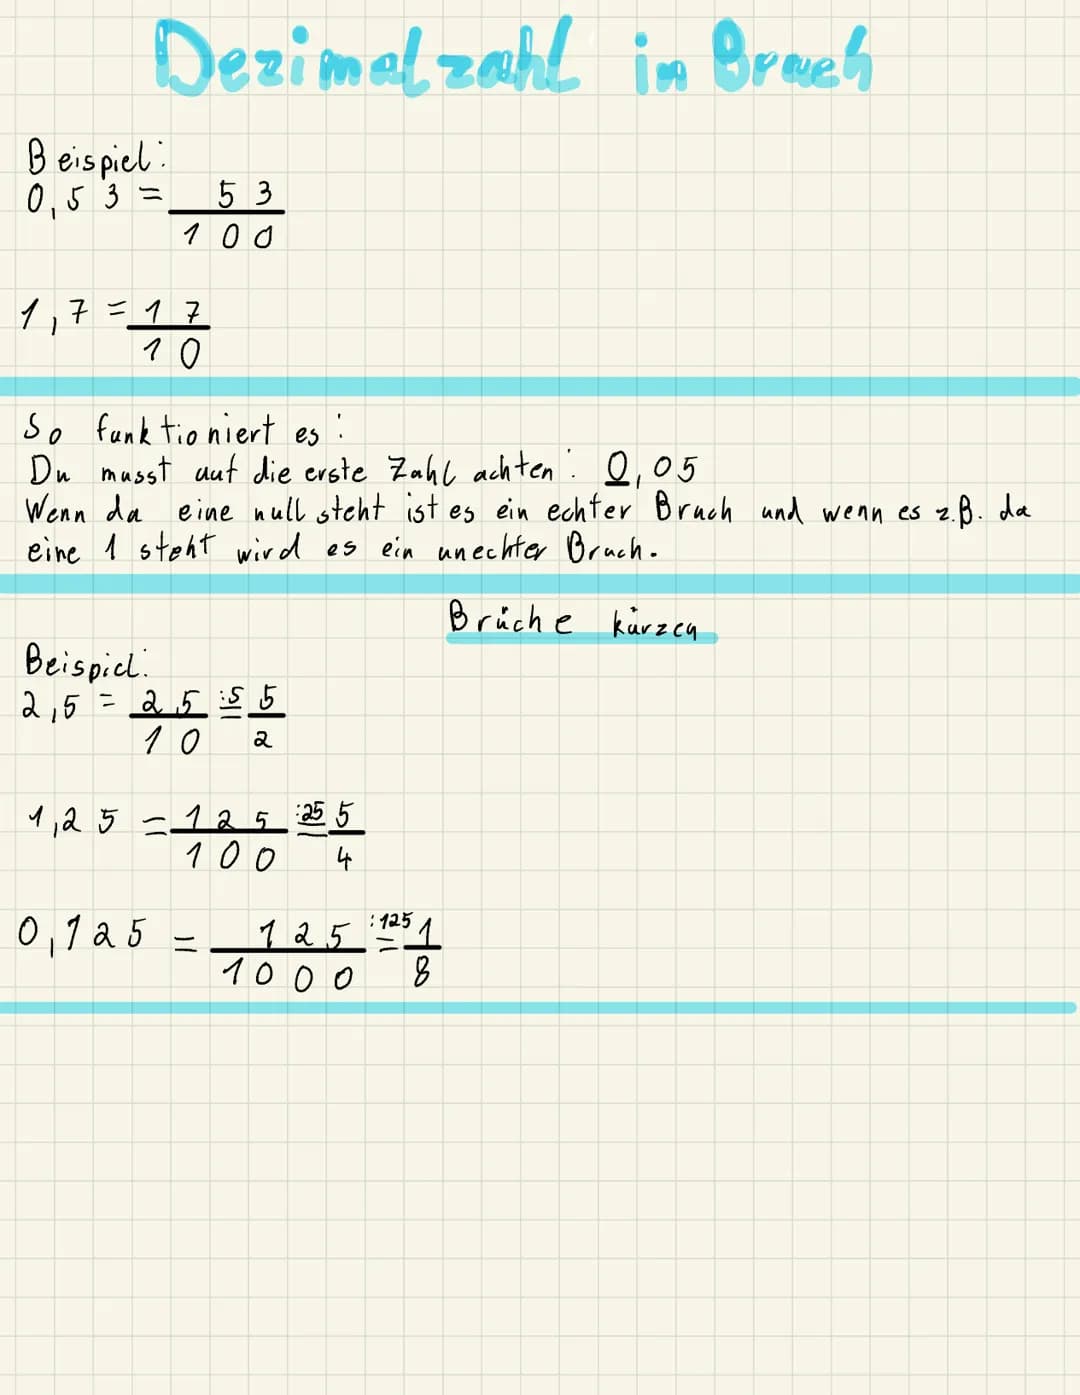 Dezimalzahl in Bruch
Beispiel:
0,53 = 53/100
1,7 = 17/10
So funktioniert es:
Du musst auf die erste Zahl achten: 0,05
Wenn da eine null steht ist es ein echter Bruch und wenn es z.B. da
eine 1 steht wird es ein unechter Bruch.
Brüche kürzen
Beispiel:
2,5 = 25/10 :5= 5/2
1,25 = 125/100 :25= 5/4
0,125 = 125/1000 :125= 1/8